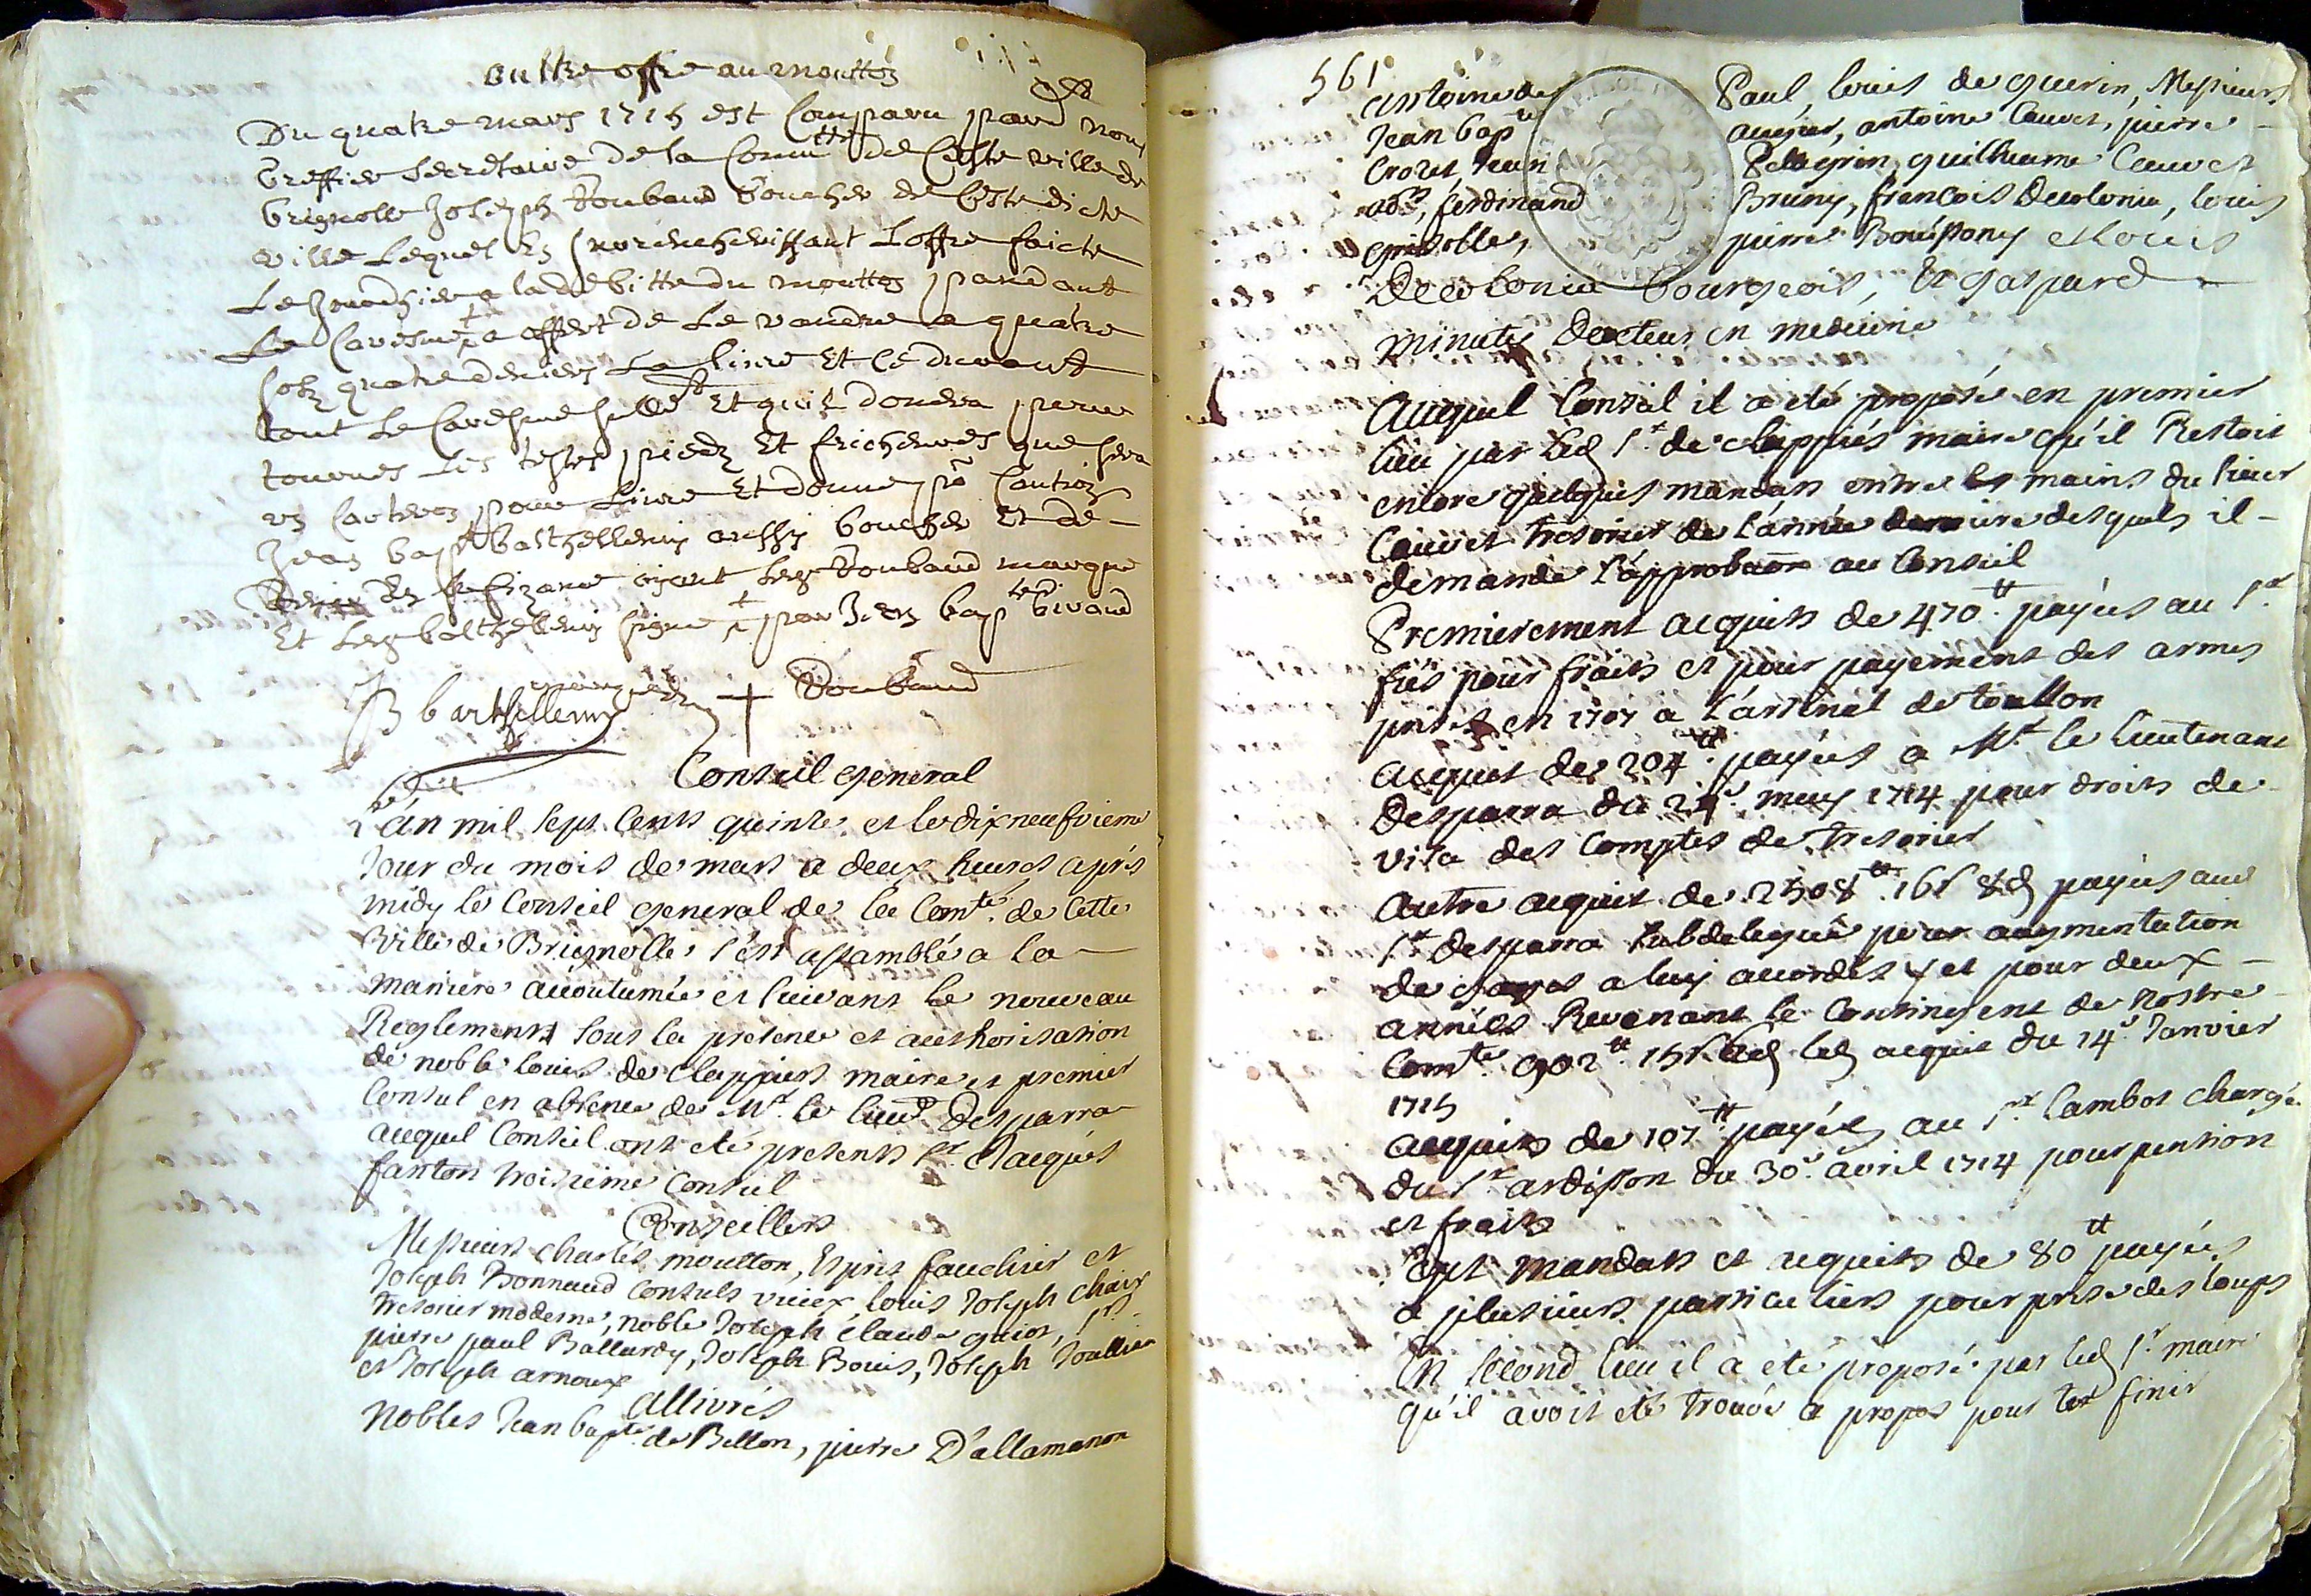 aultre offre au moutton
Du quatre mars 1715 est Comparu pard. nous
Greffier Secretaire de la Commtté de Ceste ville de
brignolle Joseph Roubaud boucher de Ceste dicte
ville Lequel En Surencherissant Loffre faicte
Le Jourdhier a la debitte du moutton pandant
Le Caresme a offert de Le vandre a quatre
solz quatre deniers La livre Et Ce durant
tout Le Caresme Et quil donera
tourues Les testes piedz Et que sera
un Carteron pour Livre Et donne po Caution
Jean bapte barthellemy aussy boucher Et de
ayant Led Roubaud marque
Et Led balthellemy signe par Jean bapte Giraud
JB barthellemy marque de + Roubaud
Conseil general
L'an mil sept Cents quinze et le dixneufvieme
Jour du mois de mars a deux heures après
midy le Conseil general de la Comte. de Cette
Ville de Brignolle s'est assamblé a la
maniere accoutumée et suivant le nouveau
Reglement sous la presence et authorisation
de noble louis de Clappiers maire et premier
Consul en absence de Mr. le lieut Desparra
auquel Conseil ont eté presents Sr. Jacques
fanton troisieme Consul
Conseillers
Messieurs Charles moutton, Esprit fauchier et
Joseph Bonnaud Consuls vieux, louis Joseph Chaix
tresorier moderne, noble Joseph Claude guiot, Srs
pierre paul Ballardy, Joseph Bouis, Joseph Joullien
et Joseph arnoux
allivrés
Nobles Jean bapte. de Bellon, pierre D'allamanon
561
antoine de Paul, louis de guerin, Messieurs
Jean bapte augier, antoine Cauvet, pierre
Crozet, Jean Pellegrin, guilheume Cauvet
adt, ferdinand Bruny, francois Decolonia, louis
grisolle, pierre Bouissony et louis
Decolonia bourgeois, Et gaspard
Minuty Docteur en medecine
Auquel Conseil il a eté proposé en premier
lieu par Led Sr. de Clappiés maire qu'il Restoit
encore quelques mandats entre les mains du sieur
Cauvet tresorier de l'année derniere desquels il
demande l'approbaon au Conseil
Premierement acquits de 470 tt payées au Sr
fiés pour frais et pour payement des armes
prises en 1707 a l'arsenal de toullon
acquit de 204 tt. payées a Mr. le lieutenant
Desparra du 24e. may 1714 pour droits de
visa des Comptes de tresorier
autre acquit de 2508 tt 16s 8d payées aud
Sr desparra subdelegué pour augmentation
de gages a luy accordés et pour deux
années Revenant le Contingent de nostre
Comte. 902 tt. 15s led acquit du 14e. Janvier
1715
acquits de 107 tt payées au Sr Cambot Chargé
du Sr ardisson du 30e. avril 1714 pour pention
et frais
sept mandats et acquits de 80 tt payées
a plusieurs particuliers pour prise des loups
En second lieu il a eté proposé par led Sr maire
qu'il avoit eté trouvé a propos pour finir